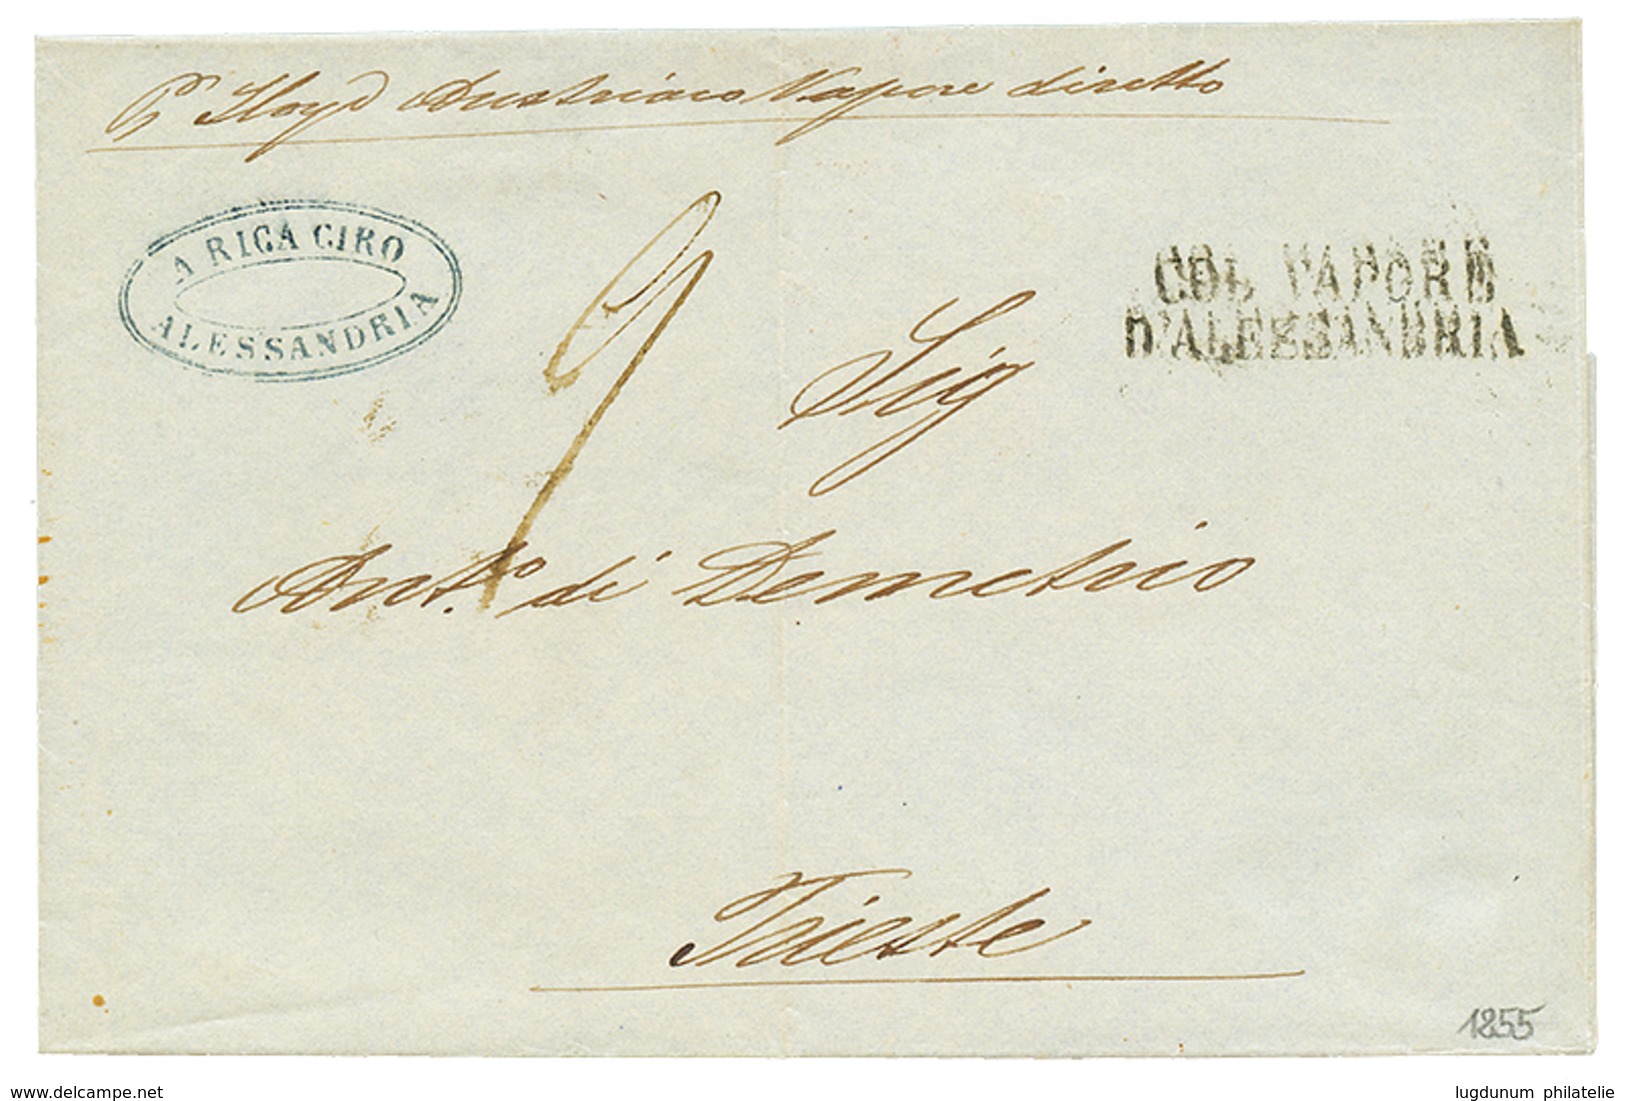 pr Lloyd Austriaco Vapore diretto
A RIGA CIRO
ALESSANDRIA
9
COL VAPORE
D'ALESSANDRIA
Sig
Anto. di Demetrio
Trieste
1855
delcampe.net
lugdunum philatelie